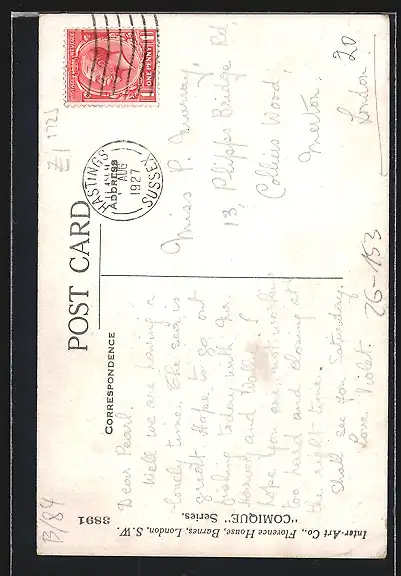 POST CARD
CORRESPONDENCE
ADDRESS
HASTINGS
SUSSEX
AUG
1927
ONE PENNY
Miss P. Murray,
13, Phipps Bridge Rd,
Colliers Wood,
Merton.
London. 20
Dear Pearl.
Well we are having a
lovely time. The sea is
great. Hope to go out
fishing today with
Harry and I
hope you are not working
too hard and closing at
the right time.
Shall see you Saturday.
Love Violet.
26-153
B/84
3891
"COMIQUE" Series.
Inter-Art Co., Florence House, Barnes, London, S.W.